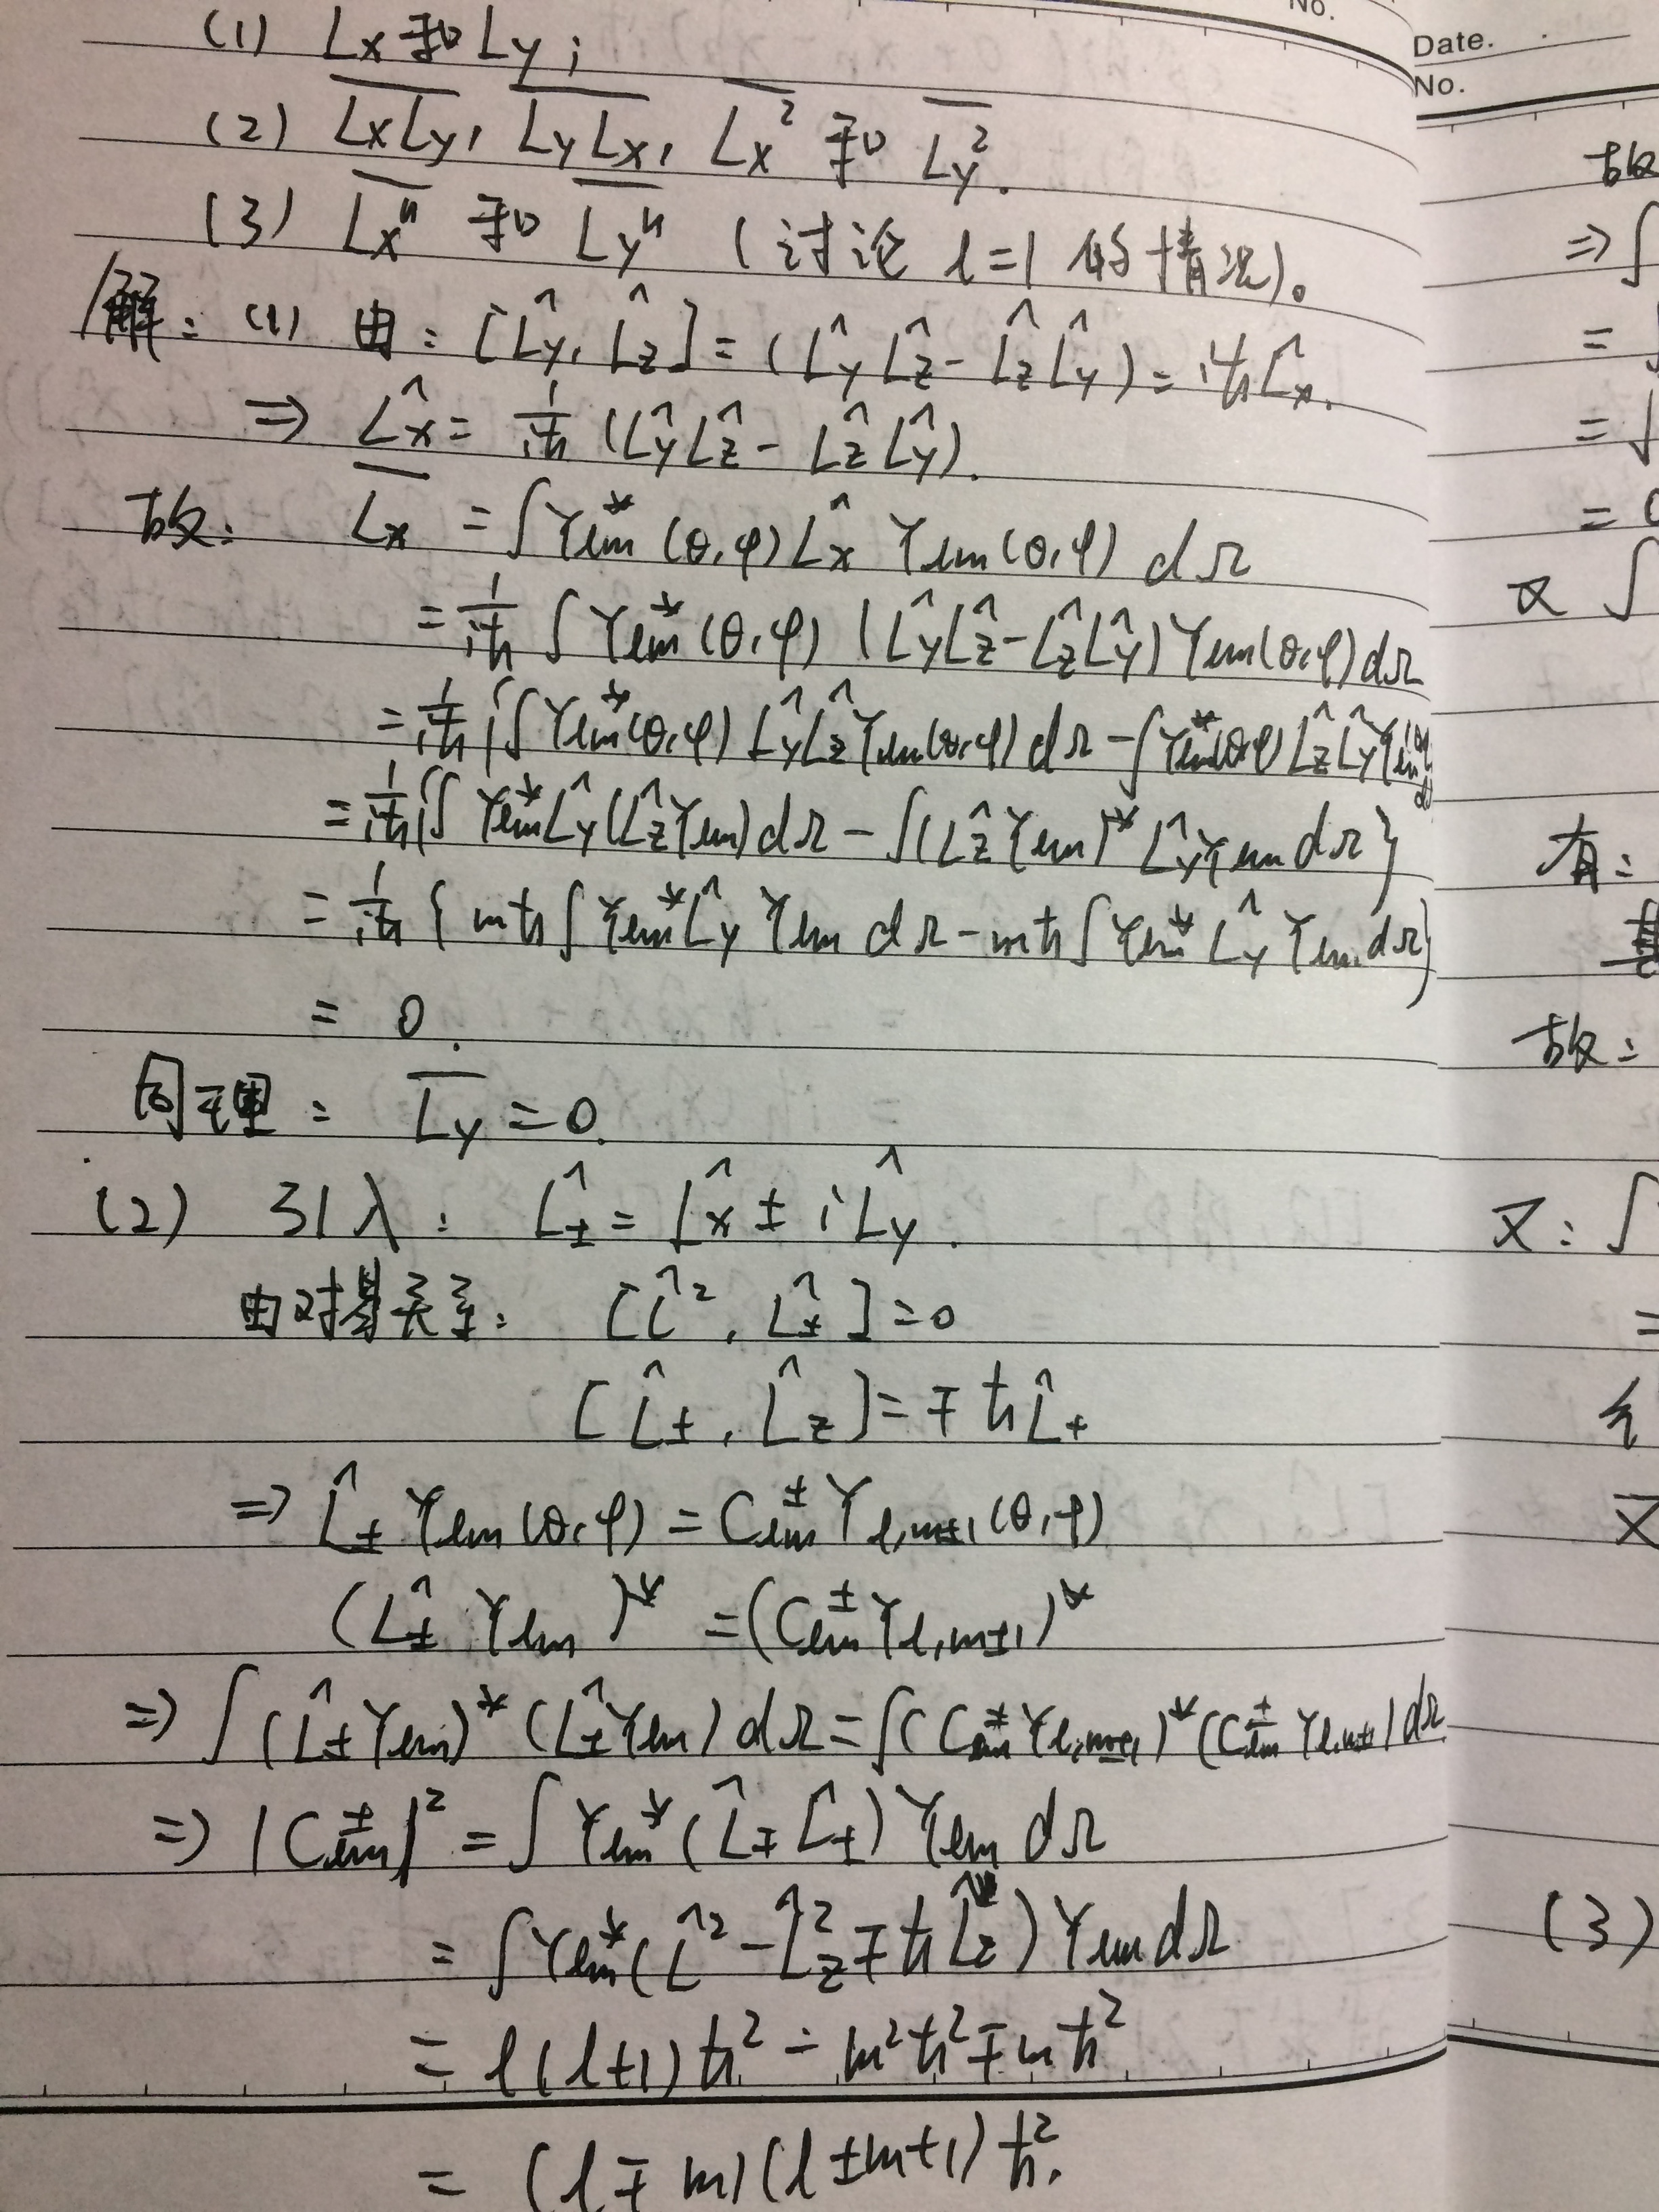 No.
(1) Lx和Ly;
(2) \overline{LxLy}, \overline{LyLx}, \overline{Lx²} 和 \overline{Ly²}.
(3) \overline{Lxⁿ} 和 \overline{Lyⁿ} (讨论 l=1 的情况)。
解: (1) 由: [L̂y, L̂z] = (L̂yL̂z - L̂zL̂y) = iħL̂x.
⇒ L̂x = 1/iħ (L̂yL̂z - L̂zL̂y).
故: \overline{Lx} = ∫Ylm*(θ,φ)L̂x Ylm(θ,φ) dΩ
= 1/iħ ∫Ylm*(θ,φ) (L̂yL̂z-L̂zL̂y)Ylm(θ,φ)dΩ
= 1/iħ {∫Ylm*(θ,φ) L̂yL̂zYlm(θ,φ) dΩ - ∫Ylm*(θφ)L̂zL̂yYlm
= 1/iħ {∫Ylm*L̂y(L̂zYlm)dΩ - ∫(L̂zYlm)*L̂yYlm dΩ}
= 1/iħ {mħ∫Ylm*L̂y Ylm dΩ - mħ∫Ylm* L̂y Ylm dΩ}
= 0.
同理: \overline{Ly} = 0.
(2) 引入: L̂± = L̂x ± iL̂y.
由对易关系: [L̂², L̂±] = 0
[L̂±, L̂z] = ∓ħL̂±
⇒ L̂± Ylm(θ,φ) = Clm± Yl,m±1(θ,φ)
(L̂± Ylm)* = (Clm± Yl,m±1)*
⇒ ∫(L̂±Ylm)*(L̂±Ylm) dΩ = ∫(Clm± Yl,m±1)*(Clm± Yl,m±1) dΩ
⇒ |Clm±|² = ∫Ylm*(L̂∓L̂±) Ylm dΩ
= ∫Ylm*(L̂² - L̂z² ∓ ħL̂z) Ylm dΩ
= l(l+1)ħ² - m²ħ² ∓ mħ²
= (l∓m)(l±m+1)ħ².
Date.
No.
故
⇒∫
=
=∫
= 0
又 ∫
有:
故:
又: ∫
=
又
(3)